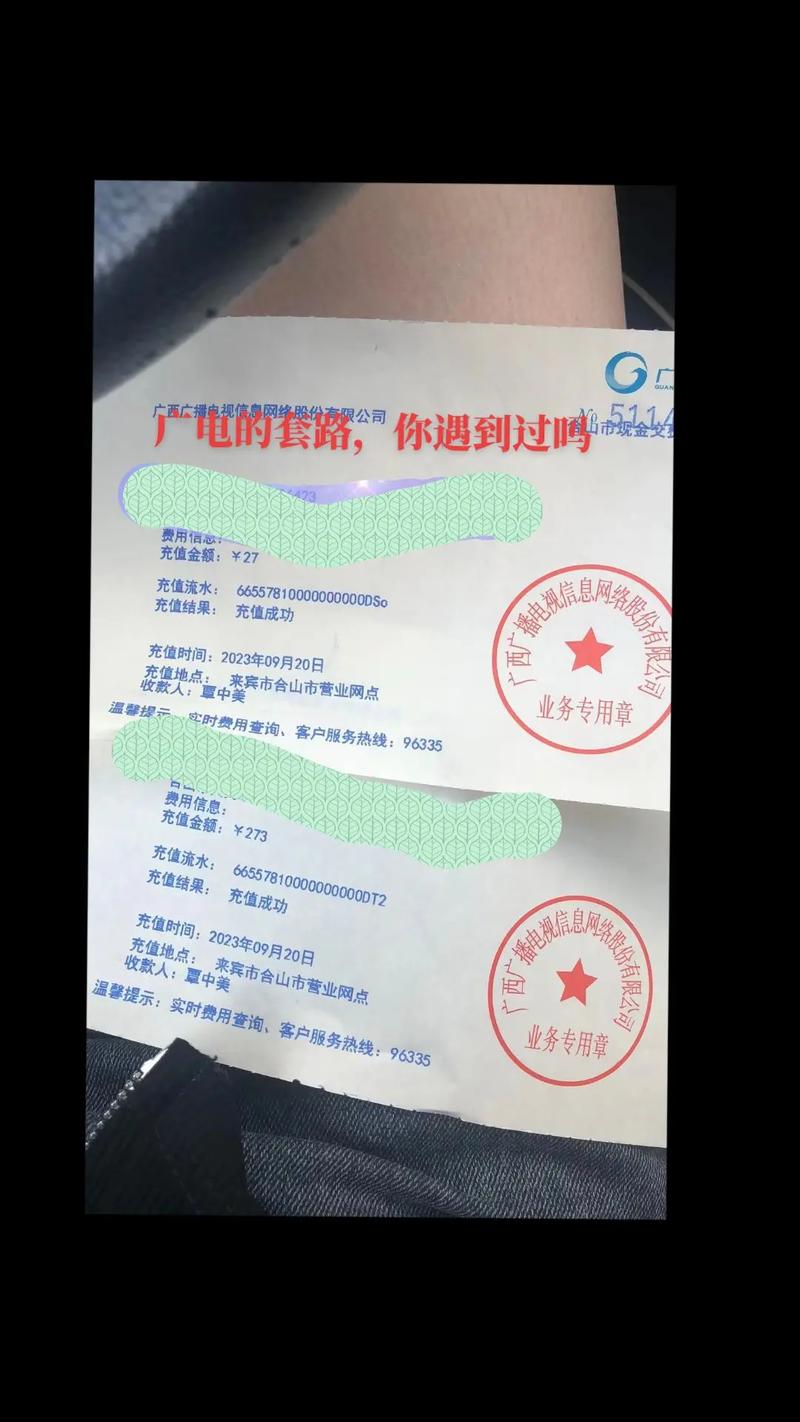 广
GUAN
广西广播电视信息网络股份有限公司
No 5114
合山市现金交费
广电的套路，你遇到过吗
6423
费用信息：
充值金额：￥27
充值流水： 66557810000000000DSo
充值结果： 充值成功
充值时间：2023年09月20日
充值地点： 来宾市合山市营业网点
收款人：覃中美
温馨提示：实时费用查询、客户服务热线：96335
广西广播电视信息网络股份有限公司
业务专用章
费用信息：
充值金额：￥273
充值流水： 66557810000000000DT2
充值结果： 充值成功
充值时间：2023年09月20日
充值地点： 来宾市合山市营业网点
收款人：覃中美
温馨提示：实时费用查询、客户服务热线：96335
广西广播电视信息网络股份有限公司
业务专用章